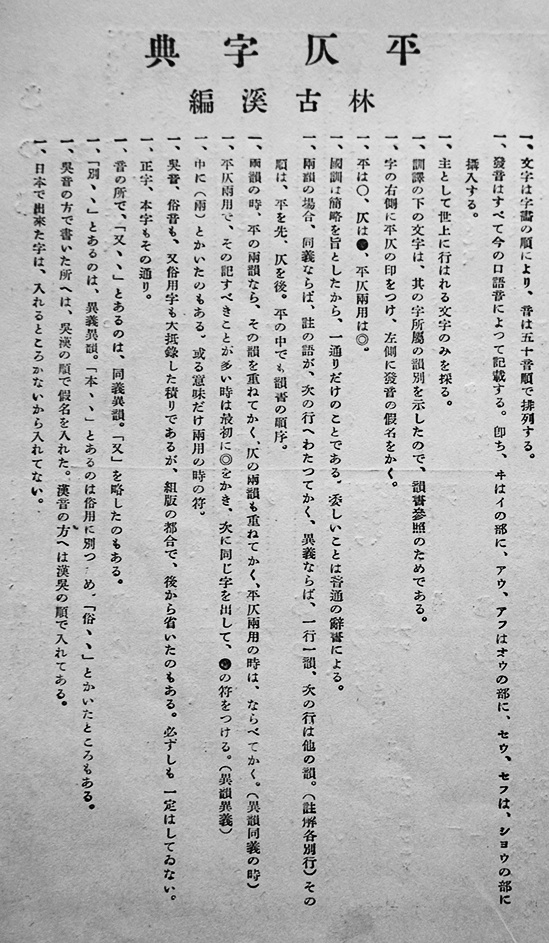 平仄字典
林古溪編
一、文字は字畫の順により、音は五十音順で排列する。
一、發音はすべて今の口語音によつて記載する。卽ち、ヰはイの部に、アウ、アフはオウの部に、セウ、セフは、ショウの部に
攝入する。
一、主として世上に行はれる文字のみを採る。
一、訓譯の下の文字は、其の字所屬の韻別を示したので、韻書參照のためである。
一、字の右側に平仄の印をつけ、左側に發音の假名をかく。
一、平は〇、仄は●、平仄兩用は◎。
一、國訓は簡略を旨としたから、一通りだけのことである。委しいことは普通の辭書による。
一、兩韻の場合、同義ならば、註の語が、次の行へわたつてかく、異義ならば、一行一韻、次の行は他の韻。(註解各別行)その
順は、平を先、仄を後。平の中でも韻書の順序。
一、兩韻の時、平の兩韻なら、その韻を重ねてかく、仄の兩韻も重ねてかく、平仄兩用の時は、ならべてかく。(異韻同義の時)
一、平仄兩用で、その記すべきことが多い時は最初に◎をかき、次に同じ字を出して、●の符をつける。(異韻異義)
一、中に(兩)とかいたのもある。或る意味だけ兩用の時の符。
一、吳音、俗音も、又俗用字も大抵錄した積りであるが、組版の都合で、後から省いたのもある。必ずしも一定はしてゐない。
一、正字、本字もその通り。
一、音の所で、「又、、」とあるのは、同義異韻。「又」を略したのもある。
一、「別、、」とあるのは、異義異韻。「本、、」とあるのは俗用に別つ め。「俗、、」とかいたところもある。
一、吳音の方で書いた所へは、吳漢の順で假名を入れた。漢音の方へは漢吳の順で入れてある。
一、日本で出來た字は、入れるところがないから入れてない。